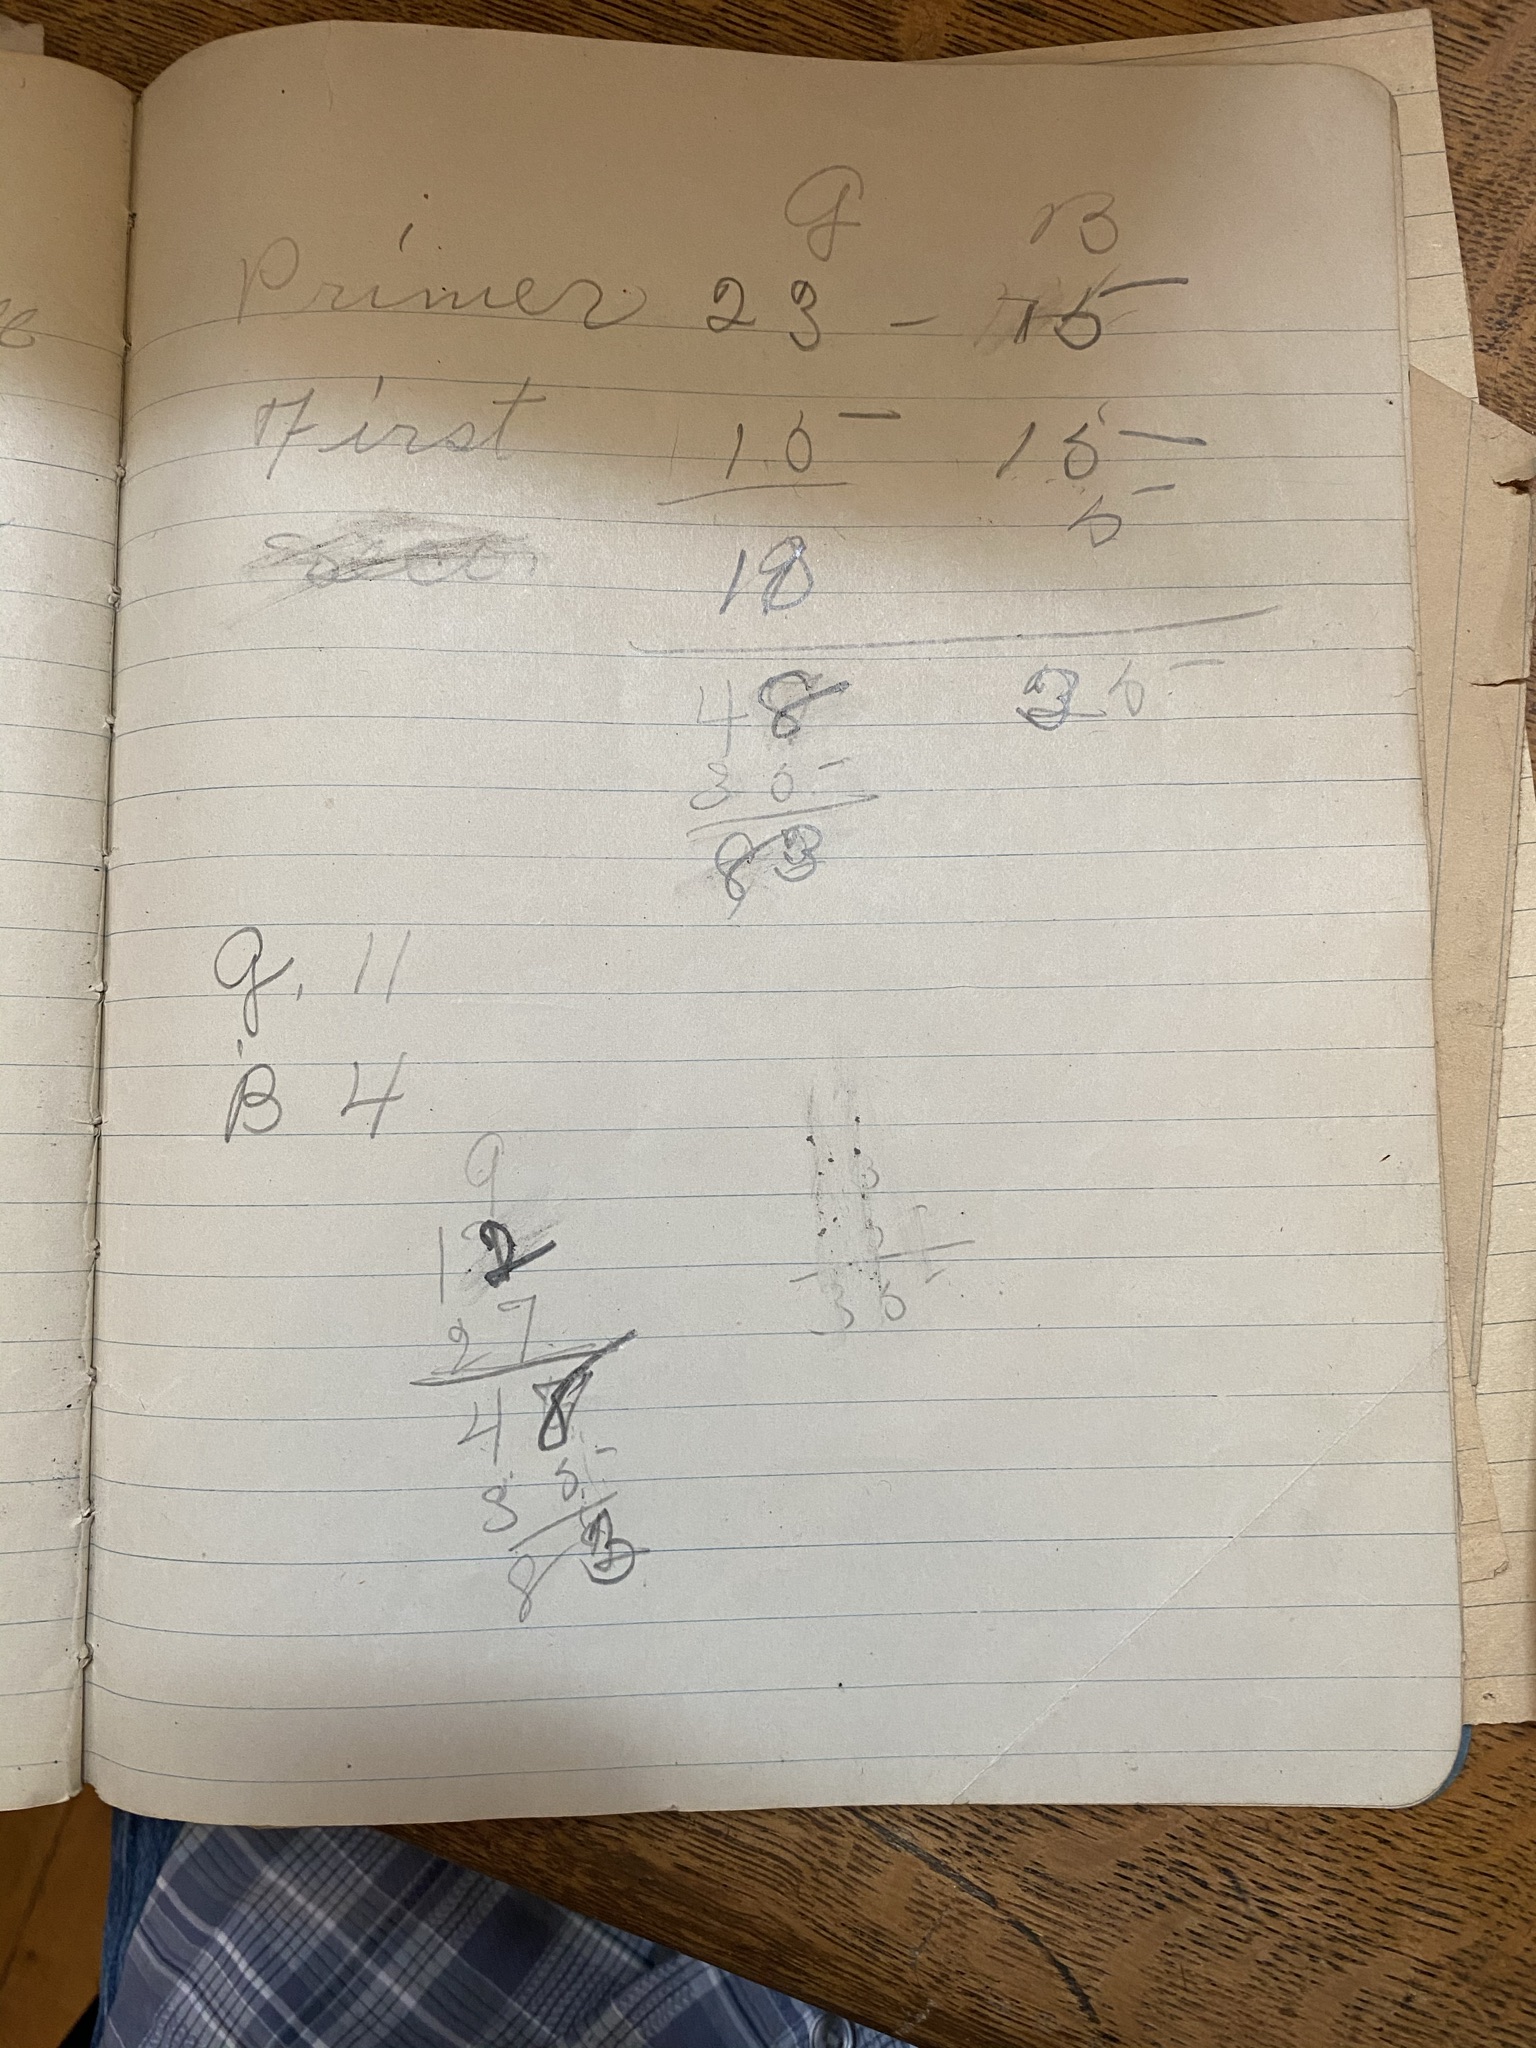 G B
Primer 23 - 15
First 15 15
5
18
48 35
35
83
G. 11
B 4
9
12
27
48
35
83
3
35